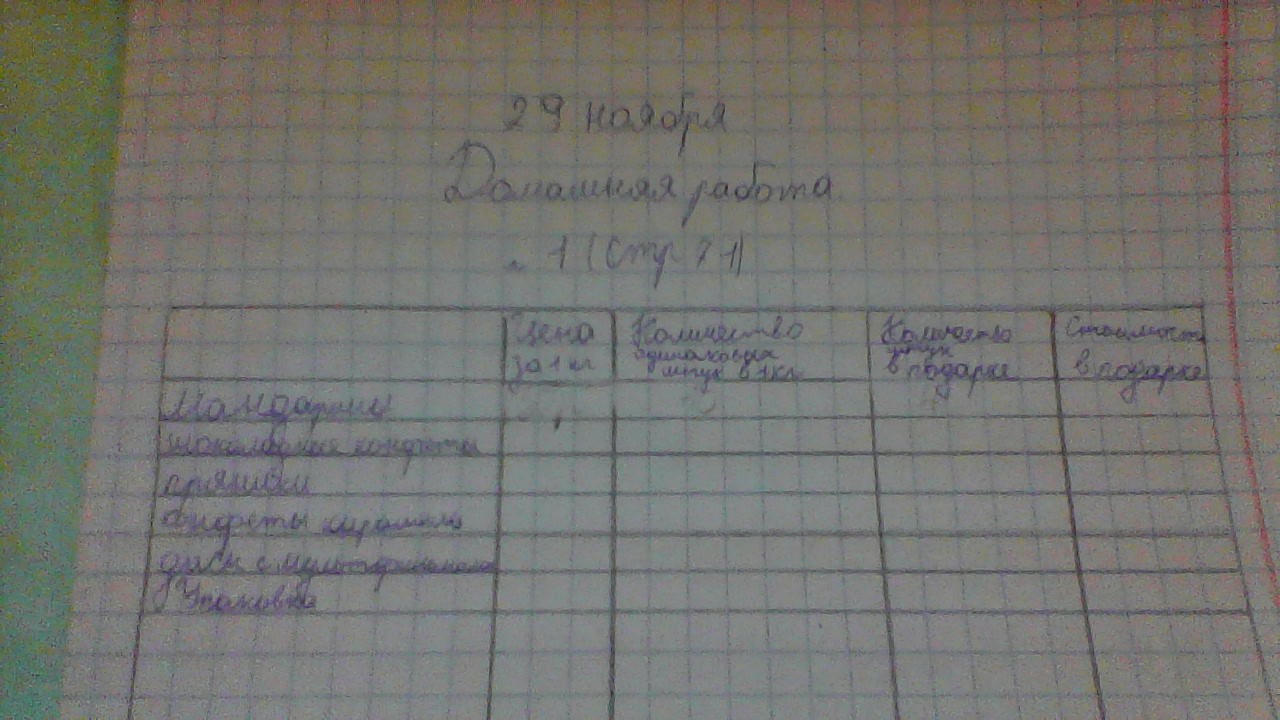 29 ноября
Домашняя работа
1 (стр 71)
Цена за 1 кг
Количество одинаковых штук в 1 кг
Количество штук в подарке
Стоимость в подарке
Мандарины
шоколадные конфеты
пряники
конфеты карамель
диск с мультфильмами
Упаковка